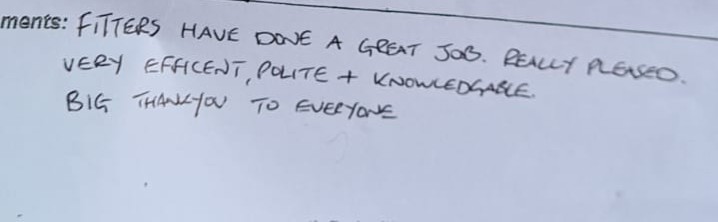 ments: FITTERS HAVE DONE A GREAT JOB. REALLY PLEASED.
VERY EFFICENT, POLITE + KNOWLEDGABLE.
BIG THANKYOU TO EVERYONE